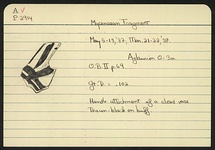 A ✓
P. 2914
Mycenaean Fragment
May 5-19, '32, Mon. 21-22, '32.
O.B. II p. 69
gr. D. = .102
Handle attachment of a closed vase
Brown-black on buff